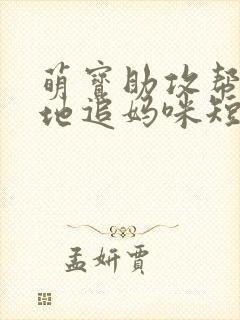 萌宝助攻帮
地追妈咪短
孟妍贾